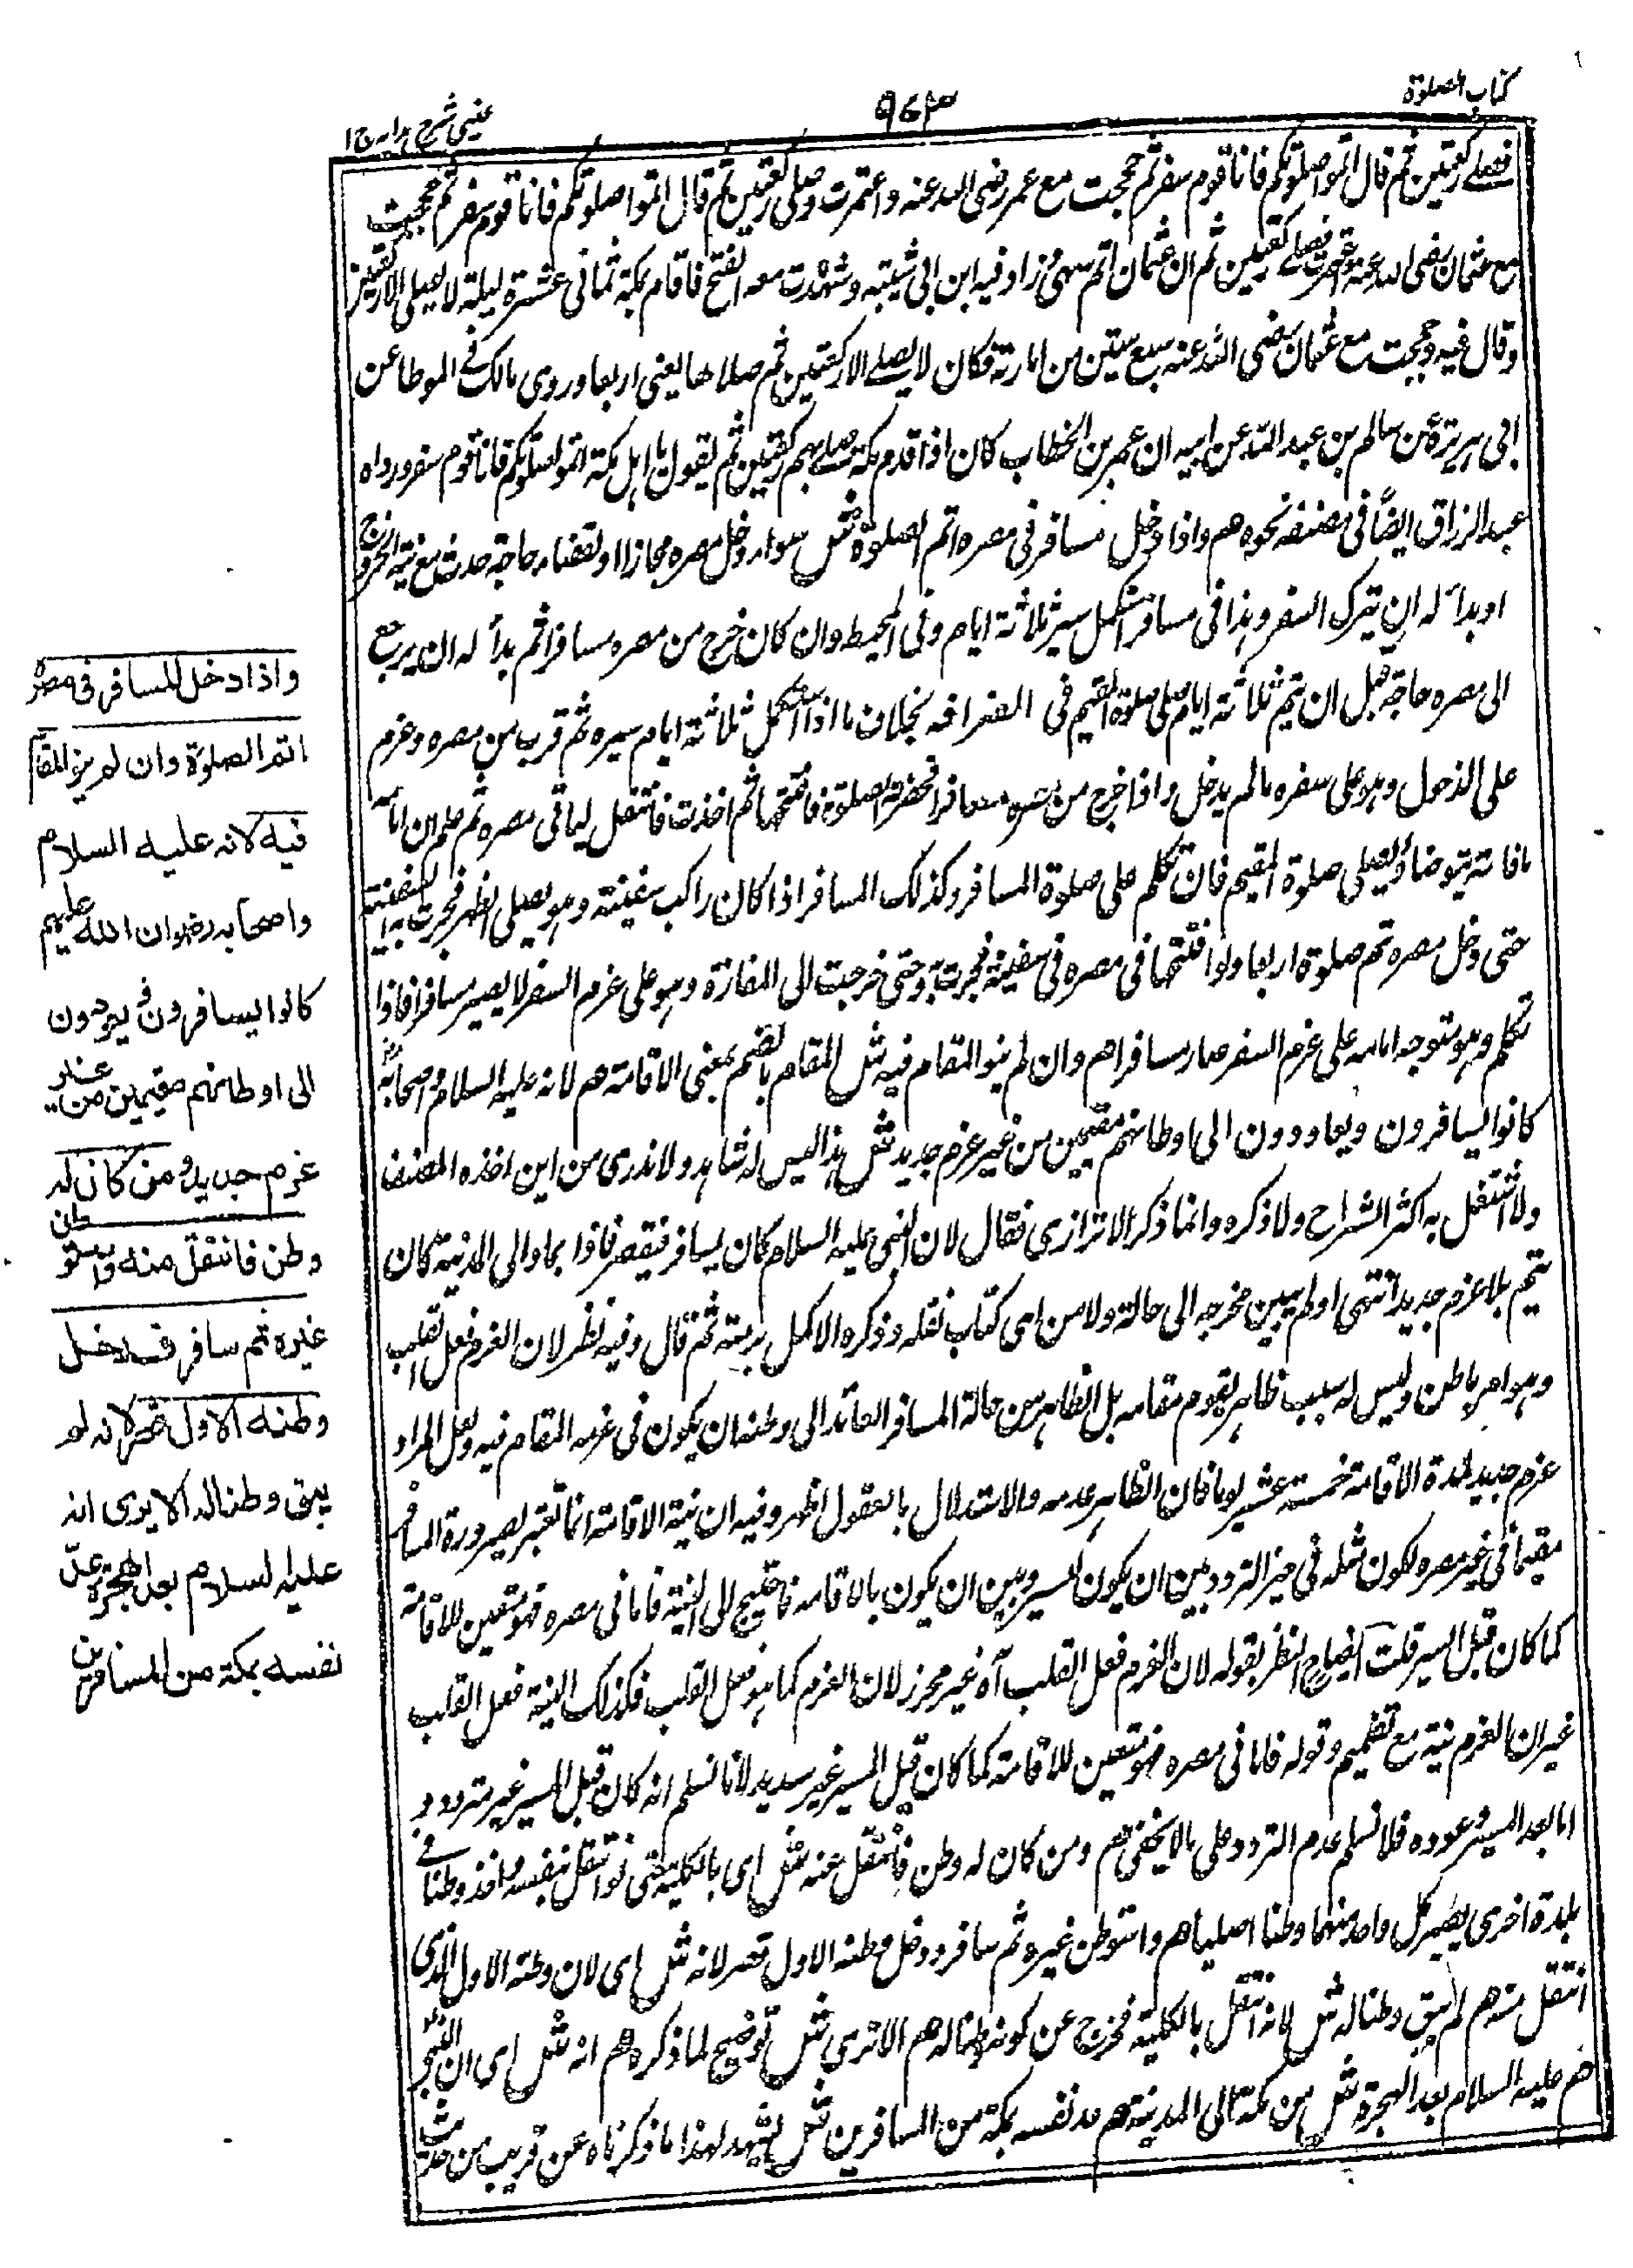 كتاب الصلوة
٩٤٣
عينى شرح هدايه ج ا
فصلى ركعتين ثم قال اتموا صلوتكم فانا قوم سفر ثم حججت مع عمر رضى الله عنه واعتمرت وصلى ركعتين ثم قال اتموا صلوتكم فانا قوم سفر ثم حججت
مع عثمان رضى الله عنه واعتمرت فصلى ركعتين ثم ان عثمان اتم انتهى وزاد فيه ابن ابى شيبة وشهدت معه الفتح فاقام بمكة ثمانى عشرة ليلة لا يصلى الا ركعتين
وقال فيه وحججت مع عثمان رضى الله عنه سبع سنين من امارته فكان لا يصلى الا ركعتين ثم صلاها يعنى اربعا وروى مالك فى الموطا عن
ابى هريرة عن سالم بن عبد الله عن ابيه ان عمر بن الخطاب كان اذا قدم مكة صلى بهم ركعتين ثم يقول يا اهل مكة اتموا صلوتكم فانا قوم سفر ورواه
عبد الرزاق ايضاً فى مصنفه نحوه هم واذا دخل مسافر فى مصره اتم الصلوة ش سواء دخل مصره مجازا او لقضاء حاجة حدثت مع نية الخروج
او بدأ له ان يترك السفر وهذا فى مسافر استكمل سير ثلاثة ايام وفى المحيط وان كان خرج من مصره مسافرا ثم بدأ له ان يرجع
الى مصره حاجة قبل ان يتم ثلاثة ايام صلى صلوة المقيم فى انصرافه بخلاف ما اذا استكمل ثلاثة ايام سيره ثم قرب من مصره وعزم
على الدخول وهو على سفره ما لم يدخل واذا خرج من مصره مسافرا فحضرت الصلوة فافتتحها ثم احدث فانتقل لياتى مصره ثم علم ان امامه
ماء فانه يتوضأ ويصلى صلوة المقيم فان تكلم صلى صلوة المسافر وكذلك المسافر اذا كان راكب سفينة وهو يصلى الظهر فجرت به السفينة
حتى دخل مصره تم صلوة اربعا ولو افتتحها فى مصره فى سفينة فجرت به حتى خرجت الى المفازة وهو على عزم السفر لا يصير مسافرا فاذا
تكلم وهو متوجه امامه على عزم السفر صار مسافرا هم وان لم ينو المقام فيه ش المقام بالضم بمعنى الاقامة هم لانه عليه السلام واصحابه
كانوا يسافرون ويعاودون الى اوطانهم مقيمين من غير عزم جديد ش هذا ليس له شاهد ولا ندرى من اين اخذه المصنف
ولا اشتغل به اكثر الشراح ولا ذكره وانما ذكر الاترازى فقال لان النبى عليه السلام كان يسافر فيقصر فاذا عاد الى المدينة كان
يتم بلا عزم جديد انتهى ولم يبين مخرجه الى حالة ولا من اى كتاب نقله وذكره الاكمل برمته ثم قال وفيه نظر لان العزم فعل القلب
وهو امر باطن وليس له سبب ظاهر يقوم مقامه بل الظاهر من حالة المسافر العائد الى وطنه ان يكون فى عزمه المقام فيه ولعل المراد
عزم جديد لمدة الاقامة خمسة عشر يوما فكان الظاهر عدمه والاستدلال بالعقول اظهر وفيه ان نية الاقامة انما تعتبر لصيرورة المسافر
مقيما فى غير مصره لكون مثله فى حيز التردد بين ان يكون للسير وبين ان يكون بالاقامة فاحتيج الى النية فاما فى مصره فهو متعين للاقامة
كما كان قبل السير قلت ايضاح النظر بقوله لان العزم فعل القلب آه غير محرز لان العزم كما هو فعل القلب فكذلك النية فعل القلب
غير ان العزم نية مع تصميم وقوله فاما فى مصره فهو متعين للاقامة كما كان قبل السير غير سديد لانا نسلم انه كان قبل السير غير متردد و
اما بعد السير وعوده فلا نسلم عدم التردد على ما لا يخفى هم ومن كان له وطن فانتقل عنه ش اى بالكلية حتى لو انتقل بنفسه واخذ وطنا فى
بلدة اخرى يصير كل واحد منهما وطنا اصليا هم واستوطن غيره ثم سافر ودخل وطنه الاول قصر لانه ش اى لان وطنه الاول الذى
انتقل منه هم لم يبق وطنا له ش لانه انتقل بالكلية فخرج عن كونه وطنا له هم الا ترى ش توضيح لما ذكره هم انه ش اى ان النبى
هم عليه السلام بعد الهجرة ش من مكة الى المدينة هم عد نفسه بمكة من المسافرين ش يشهد لهذا ما ذكرناه عن قريب من حديث
واذا دخل المسافر فى مصره
اتم الصلوة وان لم ينو المقام
فيه لانه عليه السلام
واصحابه رضوان الله عليهم
كانوا يسافرون و يعودون
الى اوطانهم مقيمين من غير
عزم جديد ومن كان له
وطن فانتقل منه واستوطن
غيره ثم سافر فدخل
وطنه الاول قصر لانه لم
يبق وطنا له الا يرى انه
عليه السلام بعد الهجرة عدّ
نفسه بمكة من المسافرين